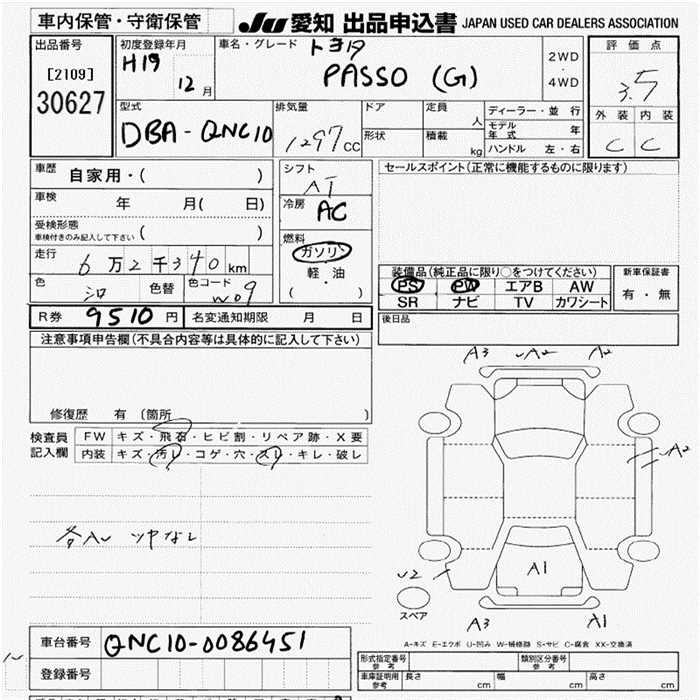 車内保管・守衛保管 JU 愛知 出品申込書 JAPAN USED CAR DEALERS ASSOCIATION
出品番号 初度登録年月 車名・グレード トヨタ 評価点
[2109] H19 12月 PASSO (G) 2WD・4WD 3.5
30627 型式 排気量 ドア 定員 人 ディーラー・並行 外装 内装
DBA-QNC10 1297cc 形状 積載 kg モデル年式 年 C C
ハンドル 左・右
車歴 自家用・( ) シフト AT セールスポイント(正常に機能するものに限ります)
車検 年 月( 日) 冷房 AC
受検形態 車検付きのみ記入して下さい ( )
走行 6万2千340km 燃料 ガソリン 装備品(純正品に限り○をつけてください) 新車保証書
軽・油 PS PW エアB AW 有・無
色 色替 色コード W09 ( ) SR ナビ TV カワシート
R券 9510円 名変通知期限 月 日 後日品
注意事項申告欄(不具合内容等は具体的に記入して下さい)
A3 A2 A2
修復歴 有 (箇所 )
検査員 FW キズ・飛石・ヒビ割・リペア跡・X要
記入欄 内装 キズ・汚レ・コゲ・穴・スレ・キレ・破レ
A2
各AU ツヤなし
A1
U2
スペア
A3 A1
A-キズ E-エクボ U-凹み W-補修跡 S-サビ C-腐食 XX-交換済
車台番号 QNC10-0086451
登録番号 形式指定番号 参考 類別区分番号 参考
車庫証明用 参考 長さ cm 幅 cm 高さ cm